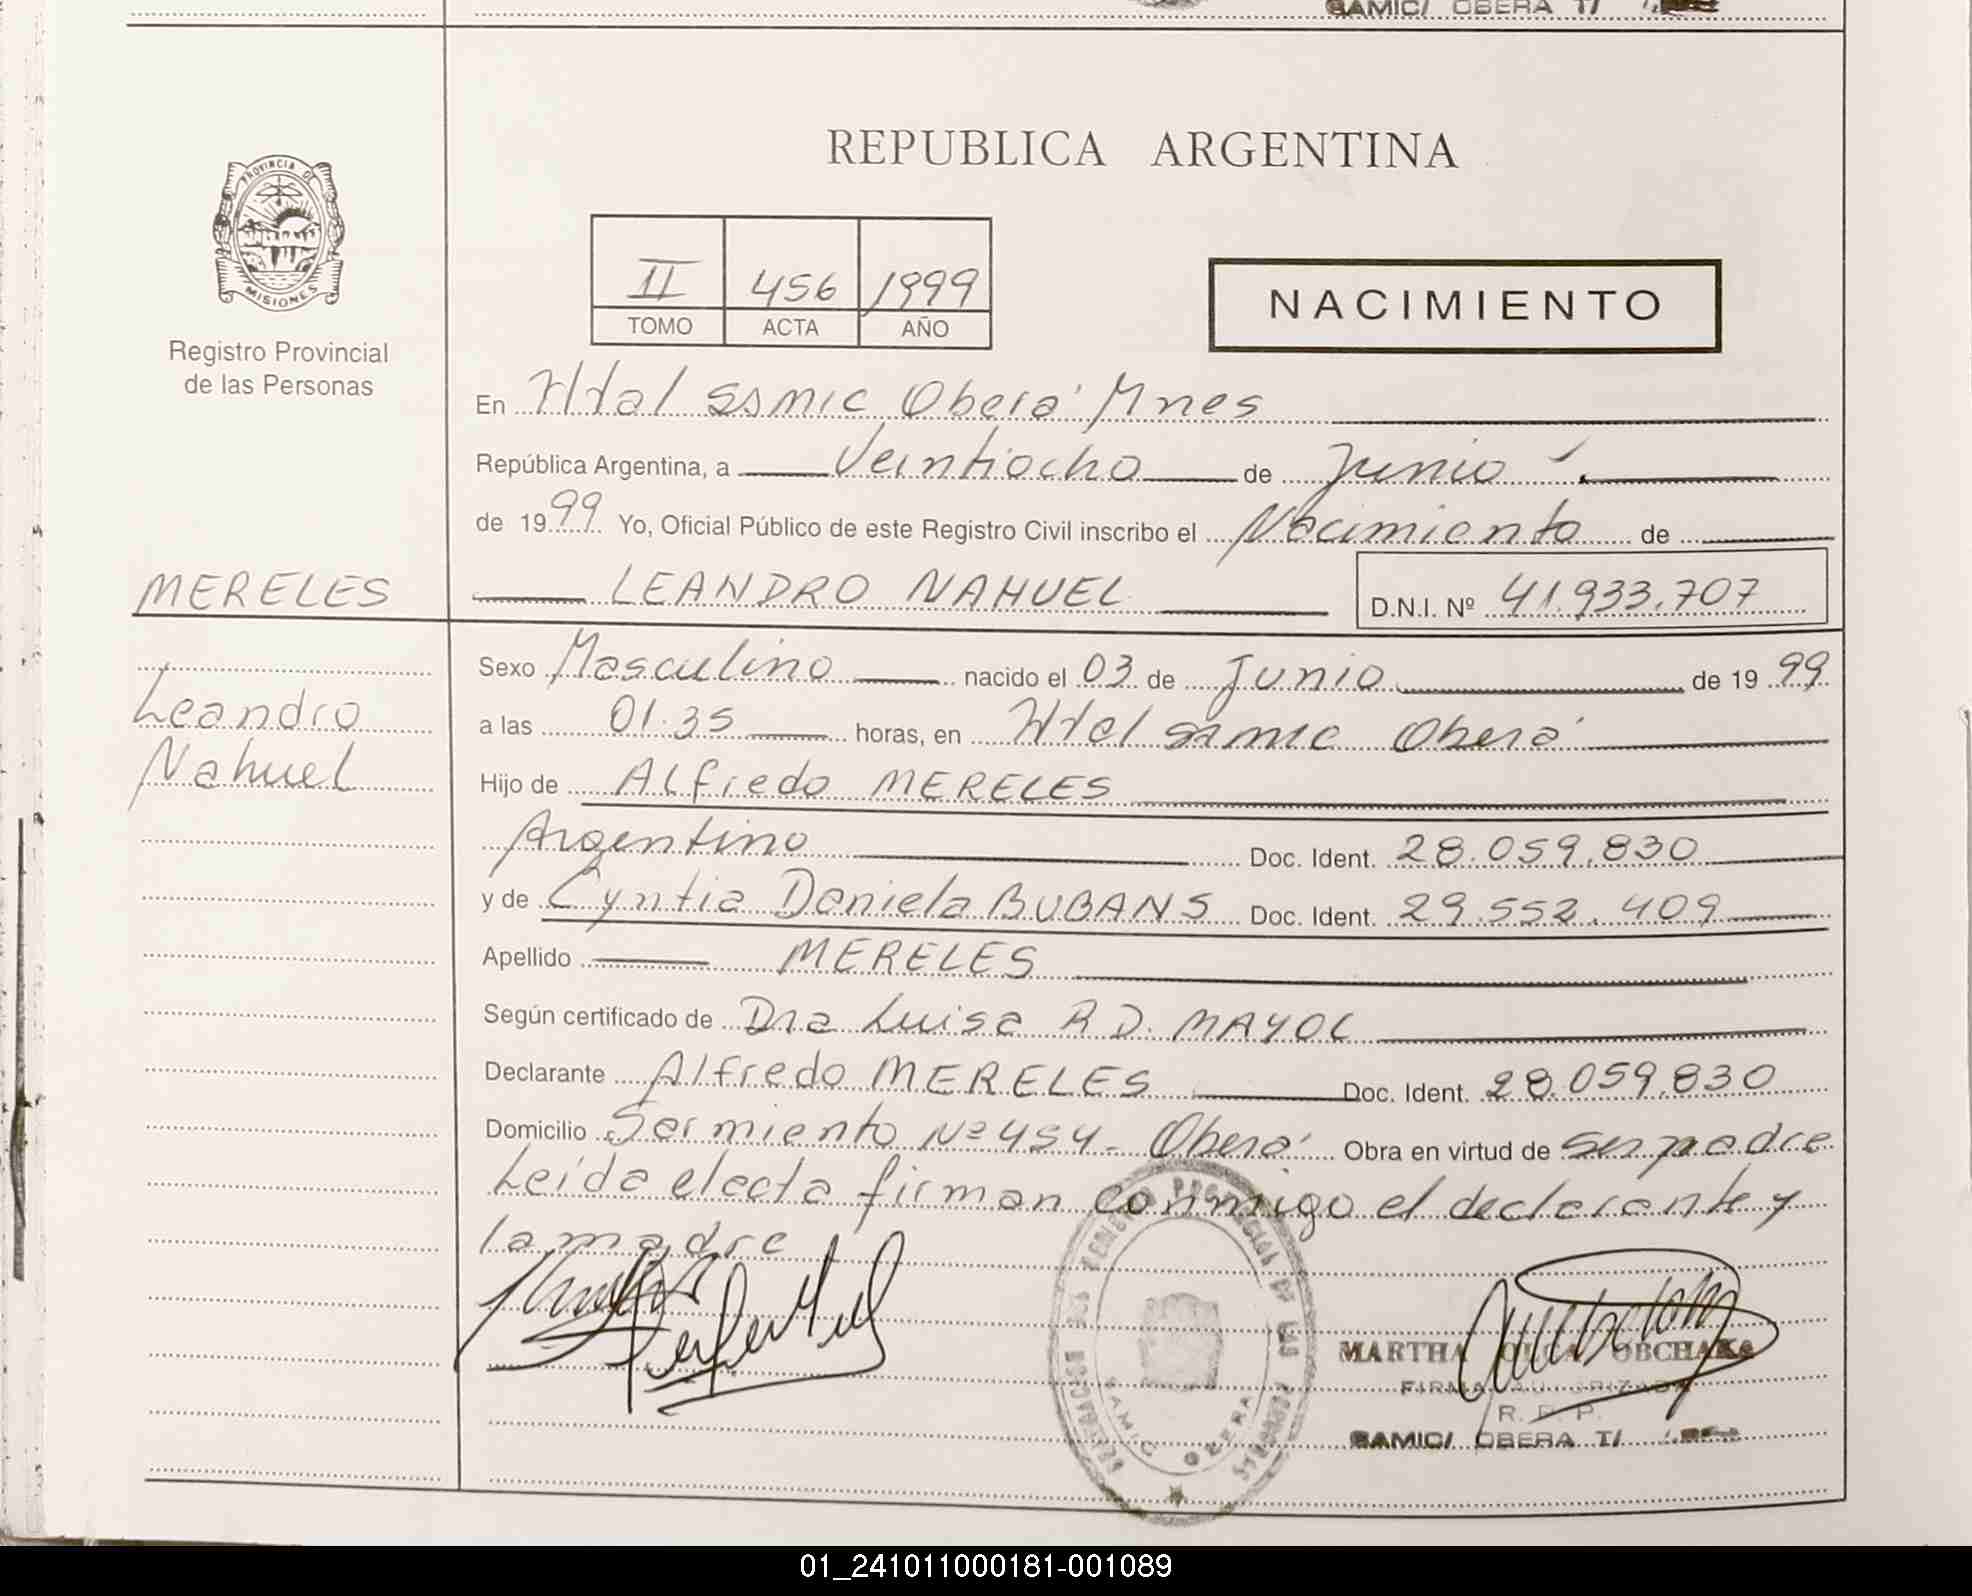 SAMIC/ OBERA T/
PROVINCIA DE
MISIONES
Registro Provincial
de las Personas
MERELES
Leandro
Nahuel
REPUBLICA ARGENTINA
II 456 1999
TOMO ACTA AÑO
NACIMIENTO
En Htal ssmic Oberá Mnes
República Argentina, a Veintiocho de Junio
de 1999 Yo, Oficial Público de este Registro Civil inscribo el Nacimiento de
LEANDRO NAHUEL D.N.I. Nº 41.933.707
Sexo Masculino nacido el 03 de Junio de 1999
a las 01.35 horas, en Htal samic Oberá
Hijo de Alfredo MERELES
Argentino Doc. Ident. 28.059.830
y de Cyntia Daniela BUBANS Doc. Ident. 29.552.409
Apellido MERELES
Según certificado de Dra Luisa R D. MAYOL
Declarante Alfredo MERELES Doc. Ident. 28.059.830
Domicilio Sarmiento Nº 454- Oberá Obra en virtud de ser padre
Leída el acta firman conmigo el declarante y
la madre
PROVINCIAL DE LAS PERSONAS
SAMIC OBERA
MARTHA OLGA OBCHAKA
FIRMA AUTORIZADA
R. P. P.
SAMIC/ OBERA T/
01_241011000181-001089